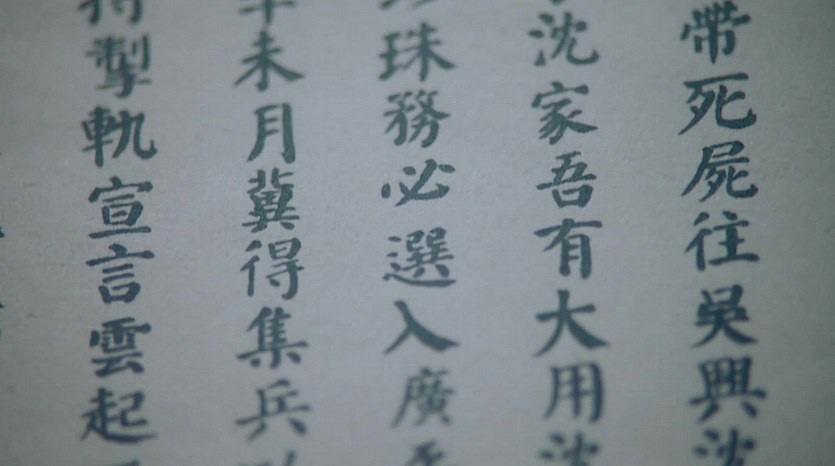 帶死屍往吳興沈
沈家吾有大用沈
珠務必選入廣
未月冀得集兵
掣軌宣言雲起